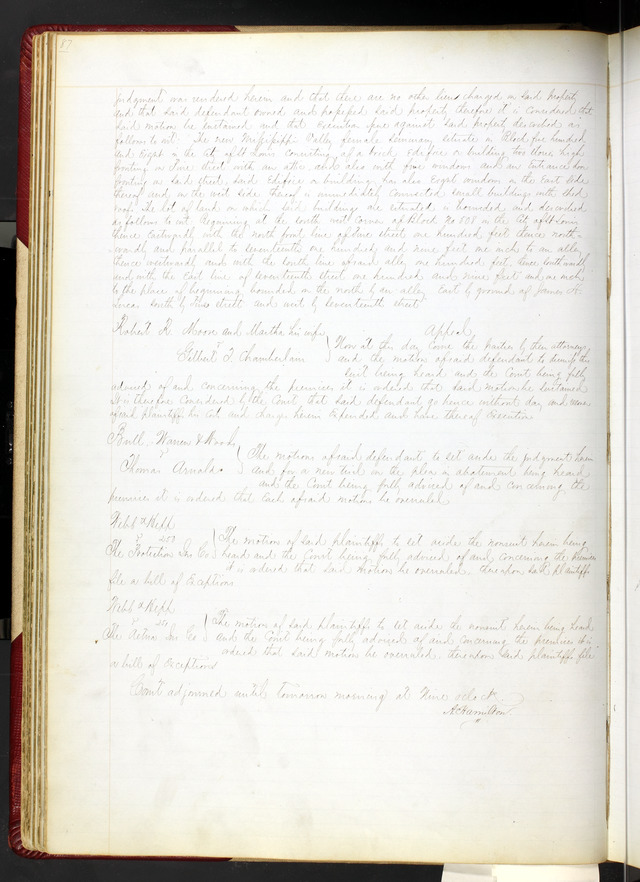 87
Judgment was rendered herein and that there are no other liens charged on said property
and that said defendant owned and possessed said property therefore it is considered that
said motion be sustained and that Execution issue against said property described as
follows to wit The new Mississippi Valley female Seminary situate in Block five hundred
and Eight in the City of St Louis consisting of a brick Edifice or building two stories high
fronting on Pine Street with an attic and also with four windows and an Entrance door
fronting on said street, said Edifice or building has also Eight windows on the East side
thereof and on the west side thereof is immediately connected small buildings with shed
roof. The lot of land on which said buildings are situated is bounded and described
as follows to wit Beginning at the south west corner of Block No 508 in the City of St Louis
thence Eastwardly with the north front line of Pine street one hundred feet thence north-
wardly and parallel to seventeenth one hundred and nine feet one inch to an alley
thence westwardly and with the south line of said alley one hundred feet, thence southward-
ly and with the East line of seventeenth street one hundred and nine feet and one inch
to the place of beginning bounded on the north by an alley East by ground of James H.
Lucas South by Pine street and west by seventeenth street
Robert R. Moore and Martha his wife Appeal
v Now at this day come the parties by their attorneys
Gilbert T. Chamberlain and the motion of said defendant to dismiss this
suit being heard and the Court being fully
advised of and concerning the premises it is ordered that said motion be sustained
It is therefore considered by the Court that said defendant go hence without day and recover
of said plaintiffs his Cost and charges herein Expended and have thereof Execution
Bull, Warren &
v The motions of said defendant to set aside the judgment herein
Thomas Arnold and for a new trial on the plea in abatement being heard
and the Court being fully advised of and concerning the
premises it is ordered that Each of said motions be overruled
Webb & Kepp
v The motion of said plaintiffs to set aside the nonsuit herein being
The Protection Ins Co heard and the Court being fully advised of and concerning the premises
it is ordered that said motion be overruled thereupon said plaintiffs
file a bill of Exceptions
Webb & Keph
v The motion of said plaintiffs to set aside the nonsuit herein being heard
The Aetna Ins Co and the Court being fully advised of and concerning the premises it is
ordered that said motion be overruled thereupon said plaintiffs file
a bill of Exceptions
Court adjourned until tomorrow morning at Nine oclock
A Hamilton